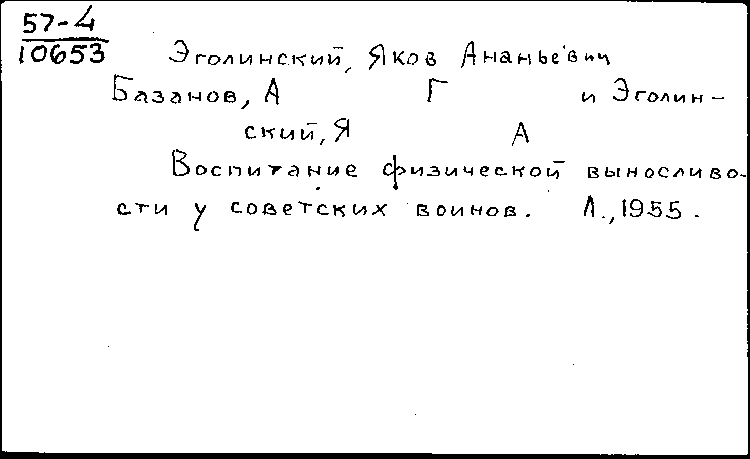 57-4
10653
Эголинский, Яков Ананьевич
Базанов, А Г и Эголин-
ский, Я А
Воспитание физической выносливо-
сти у советских воинов. Л., 1955.